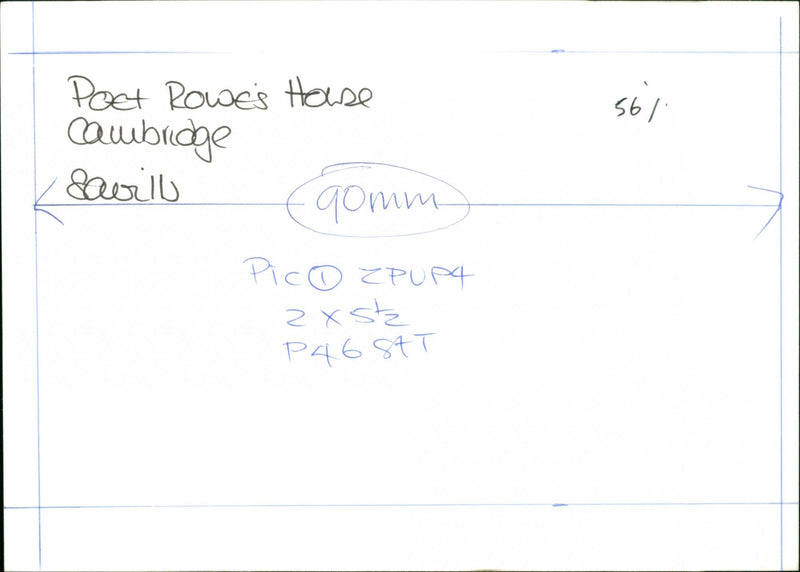 Poet Rowe's House
Cambridge
Savills
56%
90mm
Pic ① ZPUP4
2 x 5½
P46 SAT